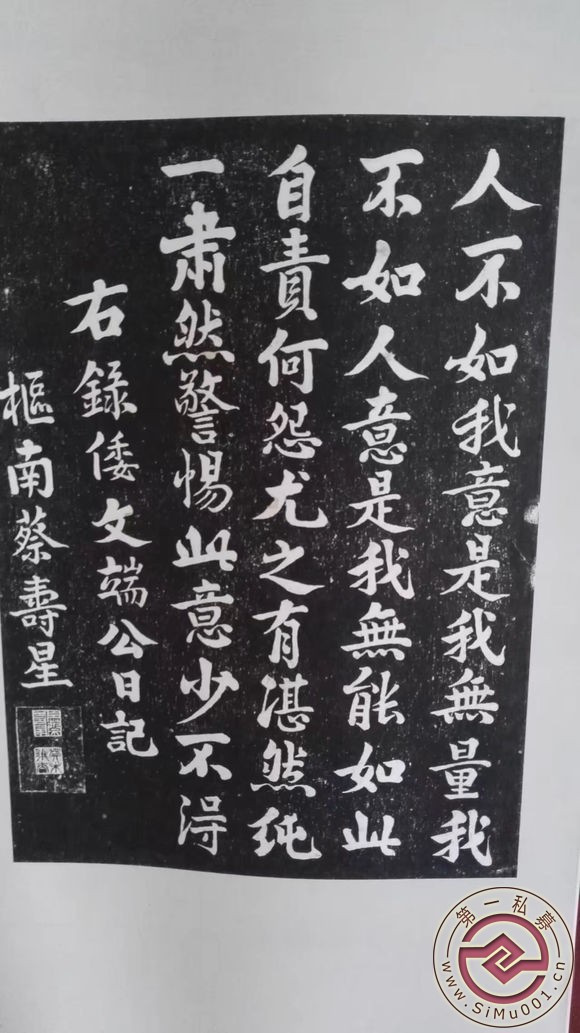 人不如我意是我無量我
不如人意是我無能如此
自責何怨尤之有湛然純
一肅然警惕此意少不得
右錄倭文端公日記
樞南蔡壽星
第一私募
www.SiMu001.cn